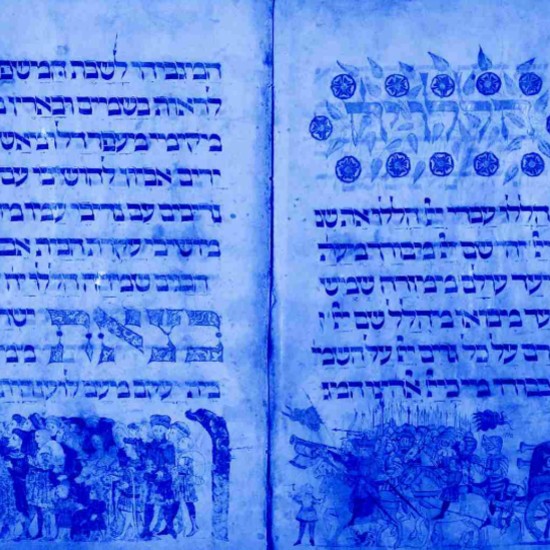 הללויה
הללו עבדי יי הללו את שם
יי יהי שם יי מבורך מעתה
ועד עולם ממזרח שמש
עד מבואו מהלל שם יי
רם על כל גוים יי על השמי
כבודו מי כיי אלהינו המג
המגביהי לשבת המשפ
לראות בשמים ובארץ
מקימי מעפר דל ומאש
ירים אביון להושיבי עם
נדיבים עם נדיבי עמו
מושיבי עקרת הבית אם
הבנים שמחה הללויה
בצאת ישר
ממ
בית יעקב מעם לועז